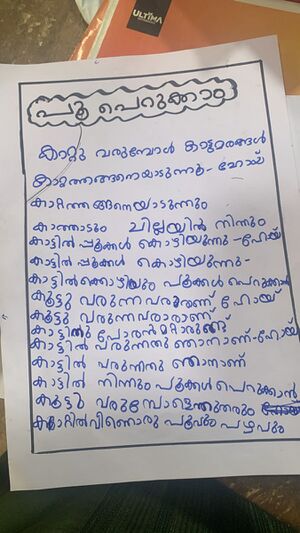 ULTIMA
പൂ പെറുക്കാം
കാറ്റു വരുമ്പോൾ കാട്ടുമരങ്ങൾ
കാറ്റത്തങ്ങനെയാടുന്നൂ- ഹോയ്
കാറ്റത്തങ്ങനെയാടുന്നു
കാത്താടും ചില്ലയിൽ നിന്നും
കാട്ടിൽ പ്പൂക്കൾ കൊഴിയുന്നു -ഹോയ്
കാട്ടിൽ പ്പൂക്കൾ കൊഴിയുന്നു-
കാട്ടിൽക്കൊഴിയും പൂക്കൾ പെറുക്കാൻ
കൂട്ടു വരുന്നവരാരാണ് ഹോയ്
കൂട്ടു വരുന്നവരാരാണ്
കാട്ടിൽ വരുന്നതു ഞാനാണ്-ഹോയ്
കാട്ടിൽ വരുന്നതു ഞാനാണ്
കാട്ടിൽ നിന്നും പൂക്കൾ പെറുക്കാൻ
കൂട്ടു വരുമ്പോളെന്തുതരും
കാറ്റിൽവീണൊരു പൂവും പഴവും